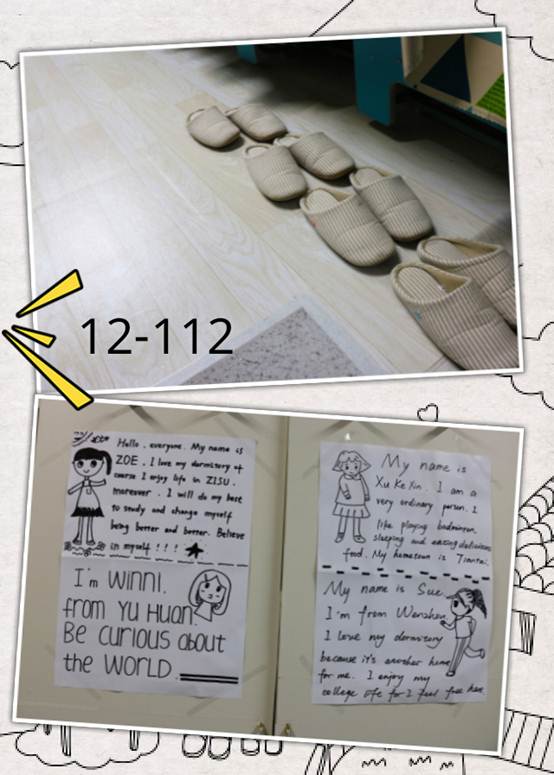 12-112
Hello, everyone. My name is
ZOE. I love my dormitory of
course I enjoy life in ZJSU.
moreover. I will do my best
to study and change myself
being better and better. Believe
in myself!!!
I'm WINNI.
from Yu Huan.
Be curious about
the WORLD.
My name is
Xu Ke Xin. I am a
very ordinary person. I
like playing badminton,
sleeping and eating delicious
food. My hometown is Tiantai.
My name is Sue.
I'm from Wenzhou
I love my dormitory
because it's another home
for me. I enjoy my
college life for I feel free here.